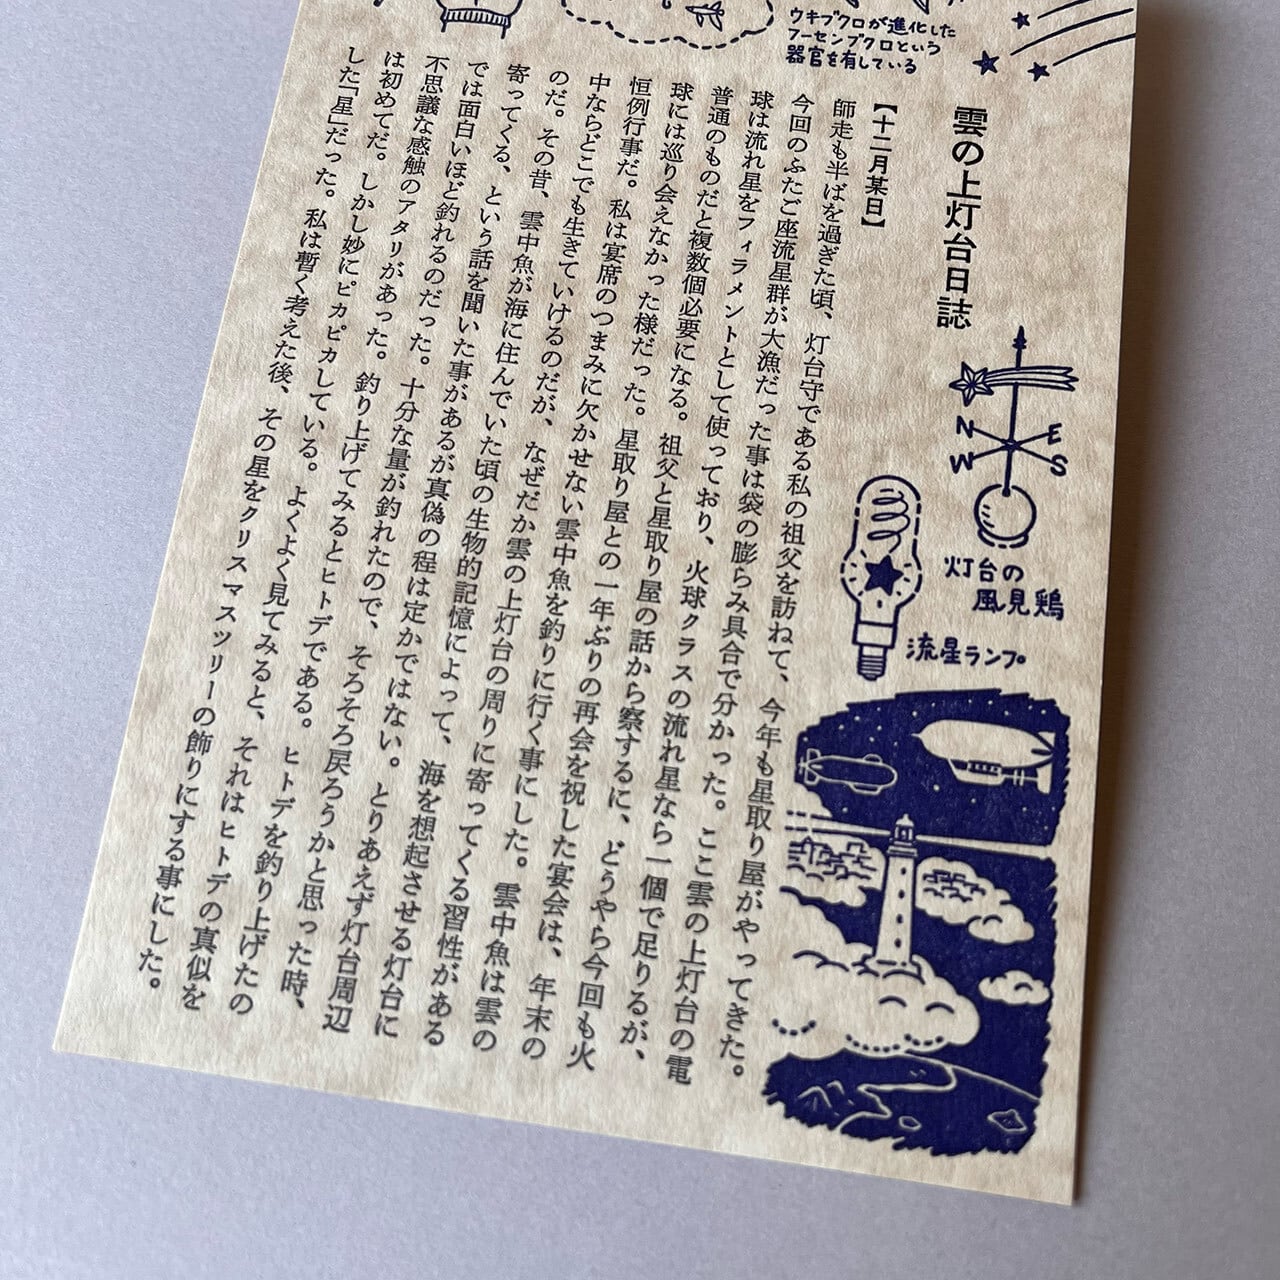 ウキブクロが進化した
フーセンブクロという
器官を有している
雲の上灯台日誌
【十二月某日】
師走も半ばを過ぎた頃、灯台守である私の祖父を訪ねて、今年も星取り屋がやってきた。
今回のふたご座流星群が大漁だった事は袋の膨らみ具合で分かった。ここ雲の上灯台の電
球は流れ星をフィラメントとして使っており、火球クラスの流れ星なら一個で足りるが、
普通のものだと複数個必要になる。祖父と星取り屋の話から察するに、どうやら今回も火
球には巡り会えなかった様だった。星取り屋との一年ぶりの再会を祝した宴会は、年末の
恒例行事だ。私は宴席のつまみに欠かせない雲中魚を釣りに行く事にした。雲中魚は雲の
中ならどこでも生きていけるのだが、なぜだか雲の上灯台の周りに寄ってくる習性がある
のだ。その昔、雲中魚が海に住んでいた頃の生物的記憶によって、海を想起させる灯台に
寄ってくる、という話を聞いた事があるが真偽の程は定かではない。とりあえず灯台周辺
では面白いほど釣れるのだった。十分な量が釣れたので、そろそろ戻ろうかと思った時、
不思議な感触のアタリがあった。釣り上げてみるとヒトデである。ヒトデを釣り上げたの
は初めてだ。しかし妙にピカピカしている。よくよく見てみると、それはヒトデの真似を
した「星」だった。私は暫く考えた後、その星をクリスマスツリーの飾りにする事にした。
N E
W S
灯台の
風見鶏
流星ランプ